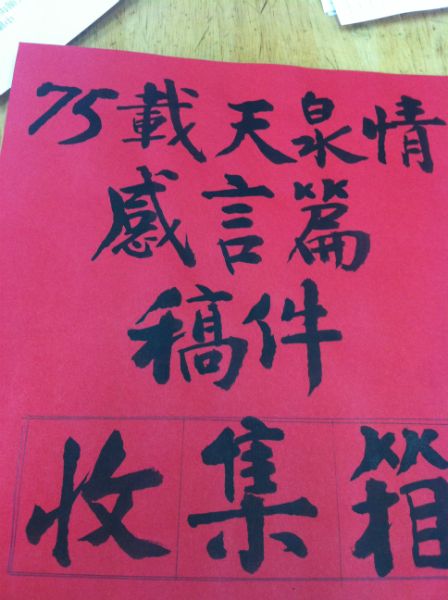 75載天泉情
感言篇
稿件
收集箱